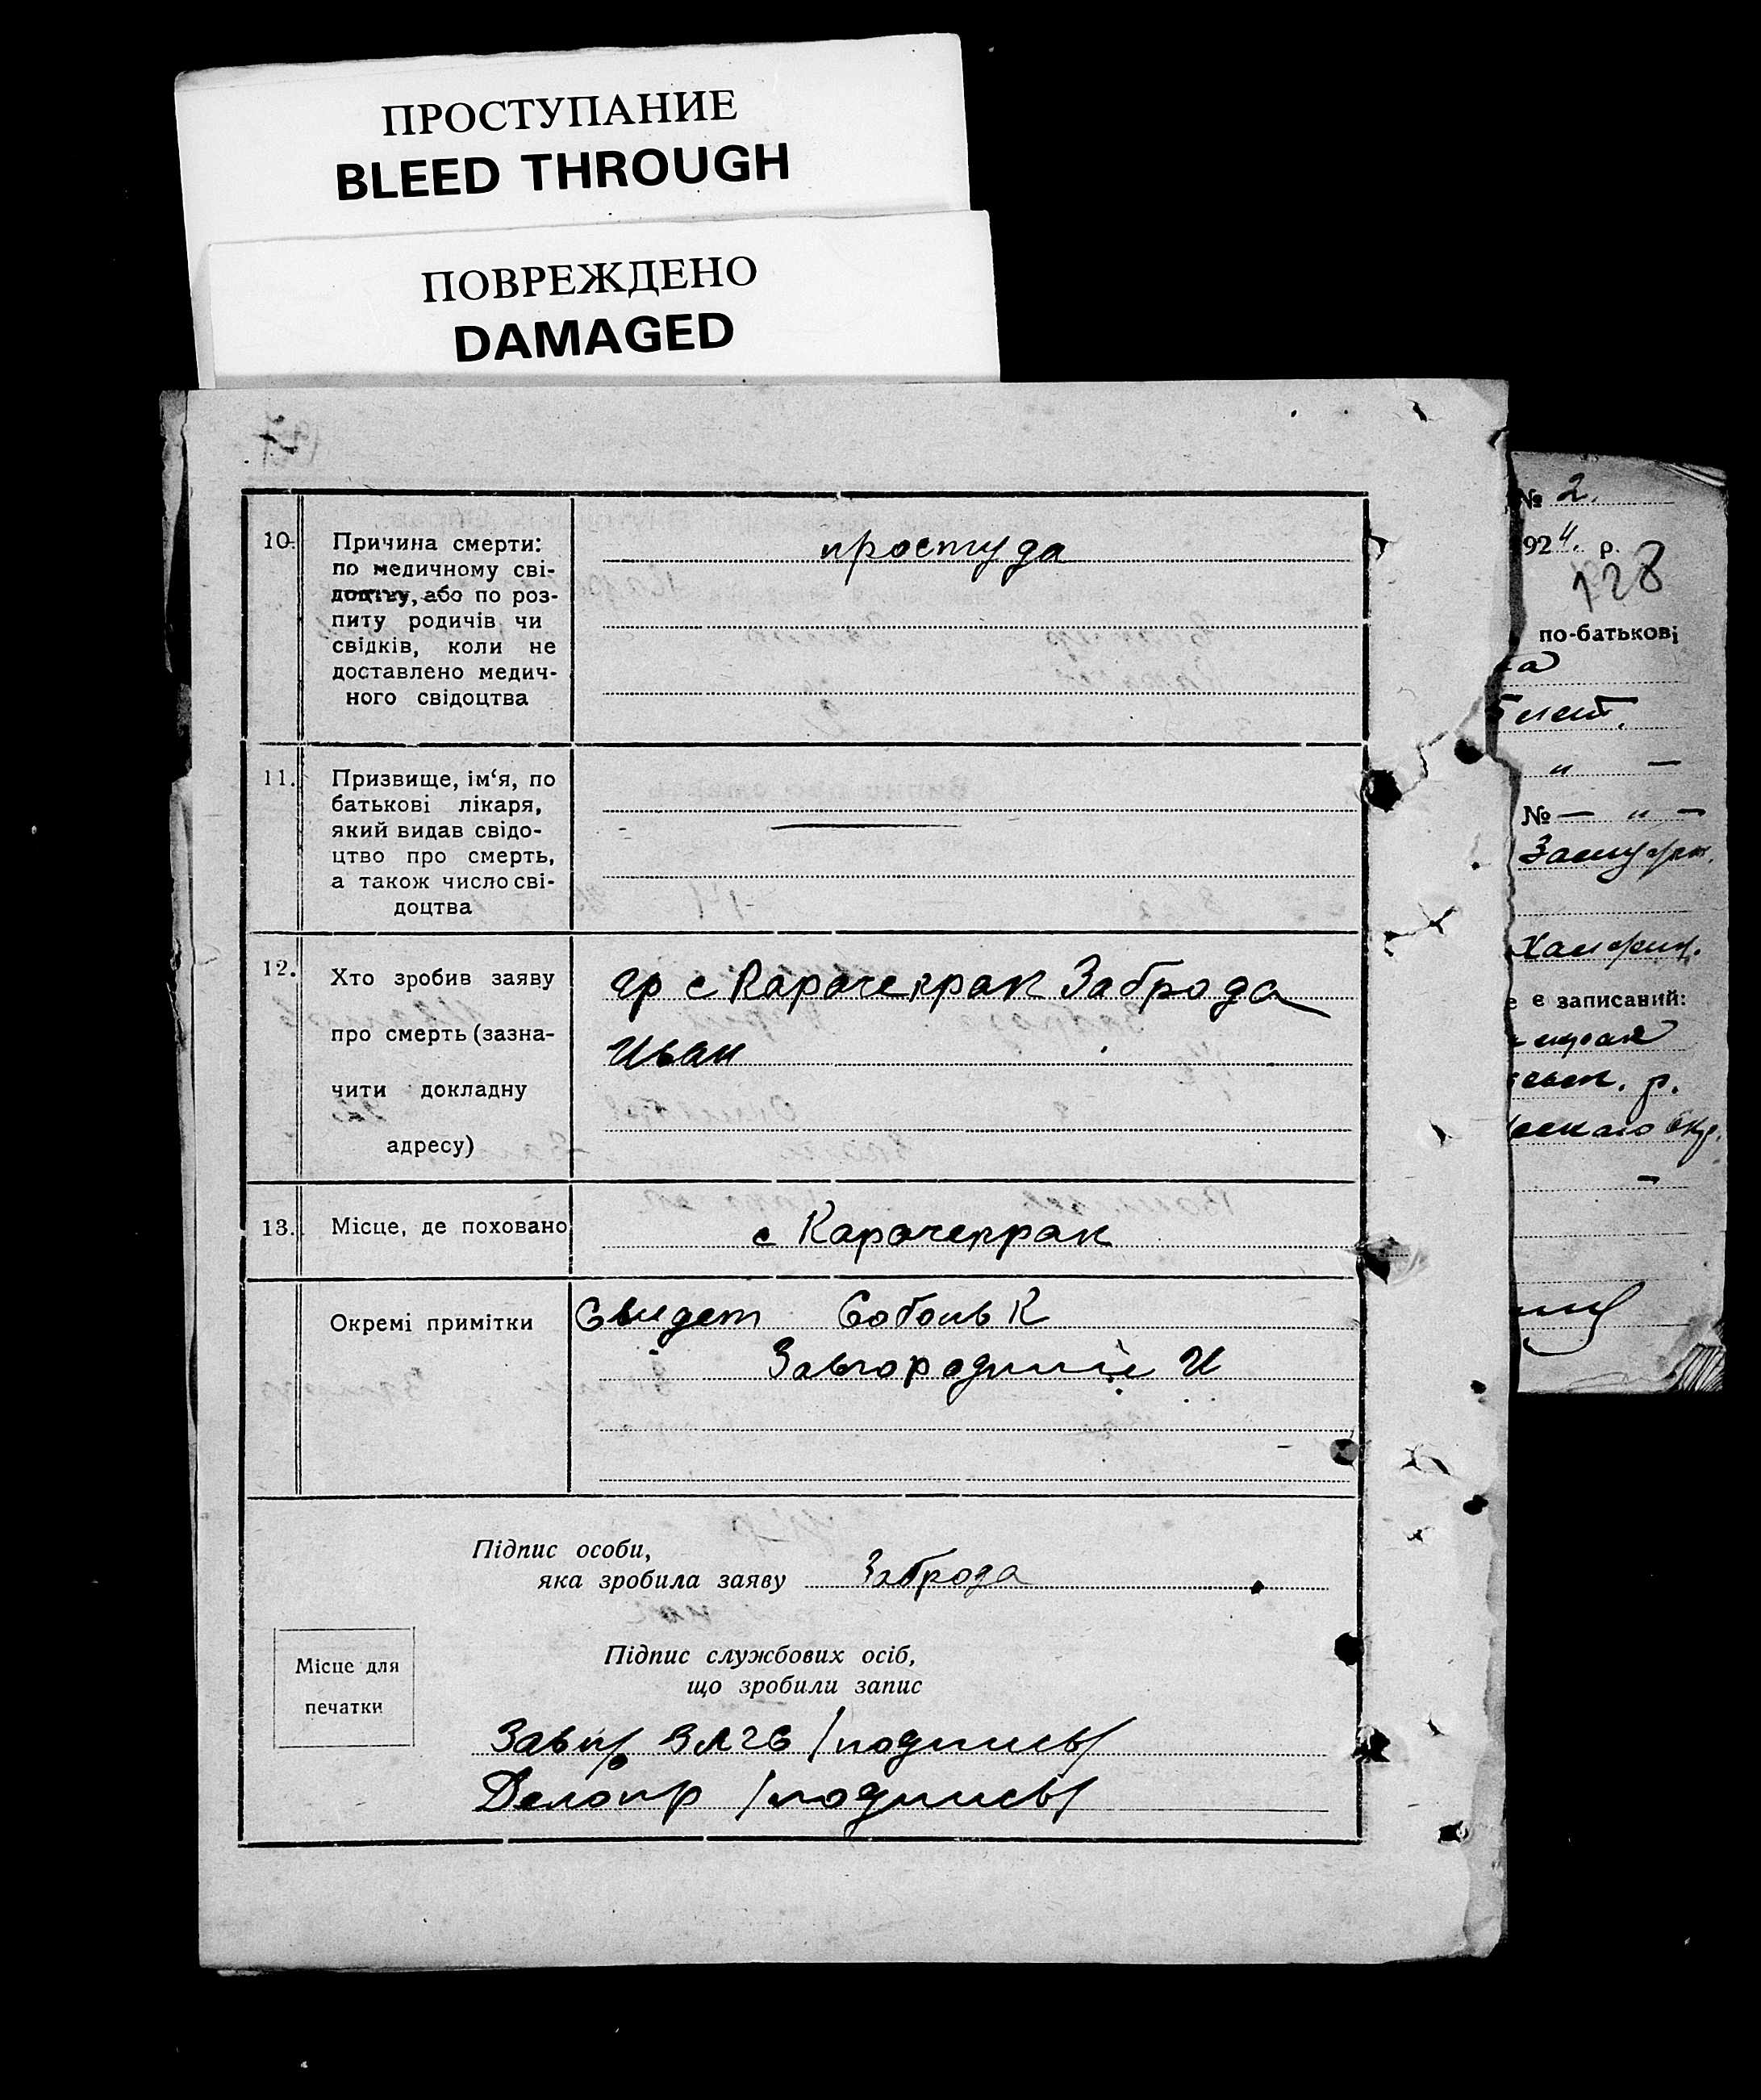 ПРОСТУПАНИЕ
BLEED THROUGH
ПОВРЕЖДЕНО
DAMAGED
10. Причина смерти:
по медичному сві-
доцтву, або по роз-
питу родичів чи
свідків, коли не
доставлено медич-
ного свідоцтва
простуда
11. Призвище, ім‘я, по
батькові лікаря,
який видав свідо-
цтво про смерть,
а також число сві-
доцтва
12. Хто зробив заяву
про смерть (зазна-
чити докладну
адресу)
гр с Карачекрак Заброда
Иван
13. Місце, де поховано
с Карачекрак
Окремі примітки
Свидет Соболь К
Завгородний И
Підпис особи,
яка зробила заяву Заброда
Місце для
печатки
Підпис службових осіб,
що зробили запис
Завп/р ЗАГС /подпись/
Делопр /подпись/
№ 2.
924. р.
128
по-батькові
№ — " —
е записаний:
р.
окр.